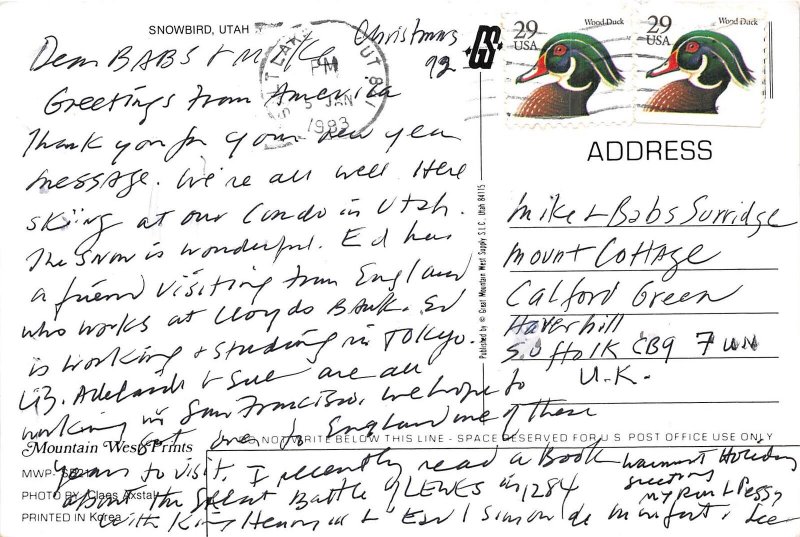 SNOWBIRD, UTAH
Christmas
92
Dear BABS & Mike
Greetings from America
Thank you for your new year
message. We're all well Here
skiing at our Condo in Utah.
The snow is wonderful. Ed has
a friend visiting from England
who works at Lloyds Bank. Ed
is working & studing in Tokyo.
Liz. Adelaide & Sue are all
working in San Francisco. We hope to
get over to England one of these
years to visit. I recently read a Book
about the Great Battle of LEWES in 1284
with King Henry III & Earl Simon de Montfort. Lee
Warmest Holiday
greetings
Mountain West Prints
MWP-
PHOTO BY: Claes Axstal
PRINTED IN Korea
PM
5 JAN
1993
UT 841
GS
Published by © Great Mountain West Supply S.L.C. Utah 84115
29
USA
Wood Duck
29
USA
Wood Duck
ADDRESS
Mike & Babs Surridge
Mount Cottage
Calford Green
Haverhill
Suffolk CB9 7UN
U.K.
DO NOT WRITE BELOW THIS LINE - SPACE RESERVED FOR U.S. POST OFFICE USE ONLY